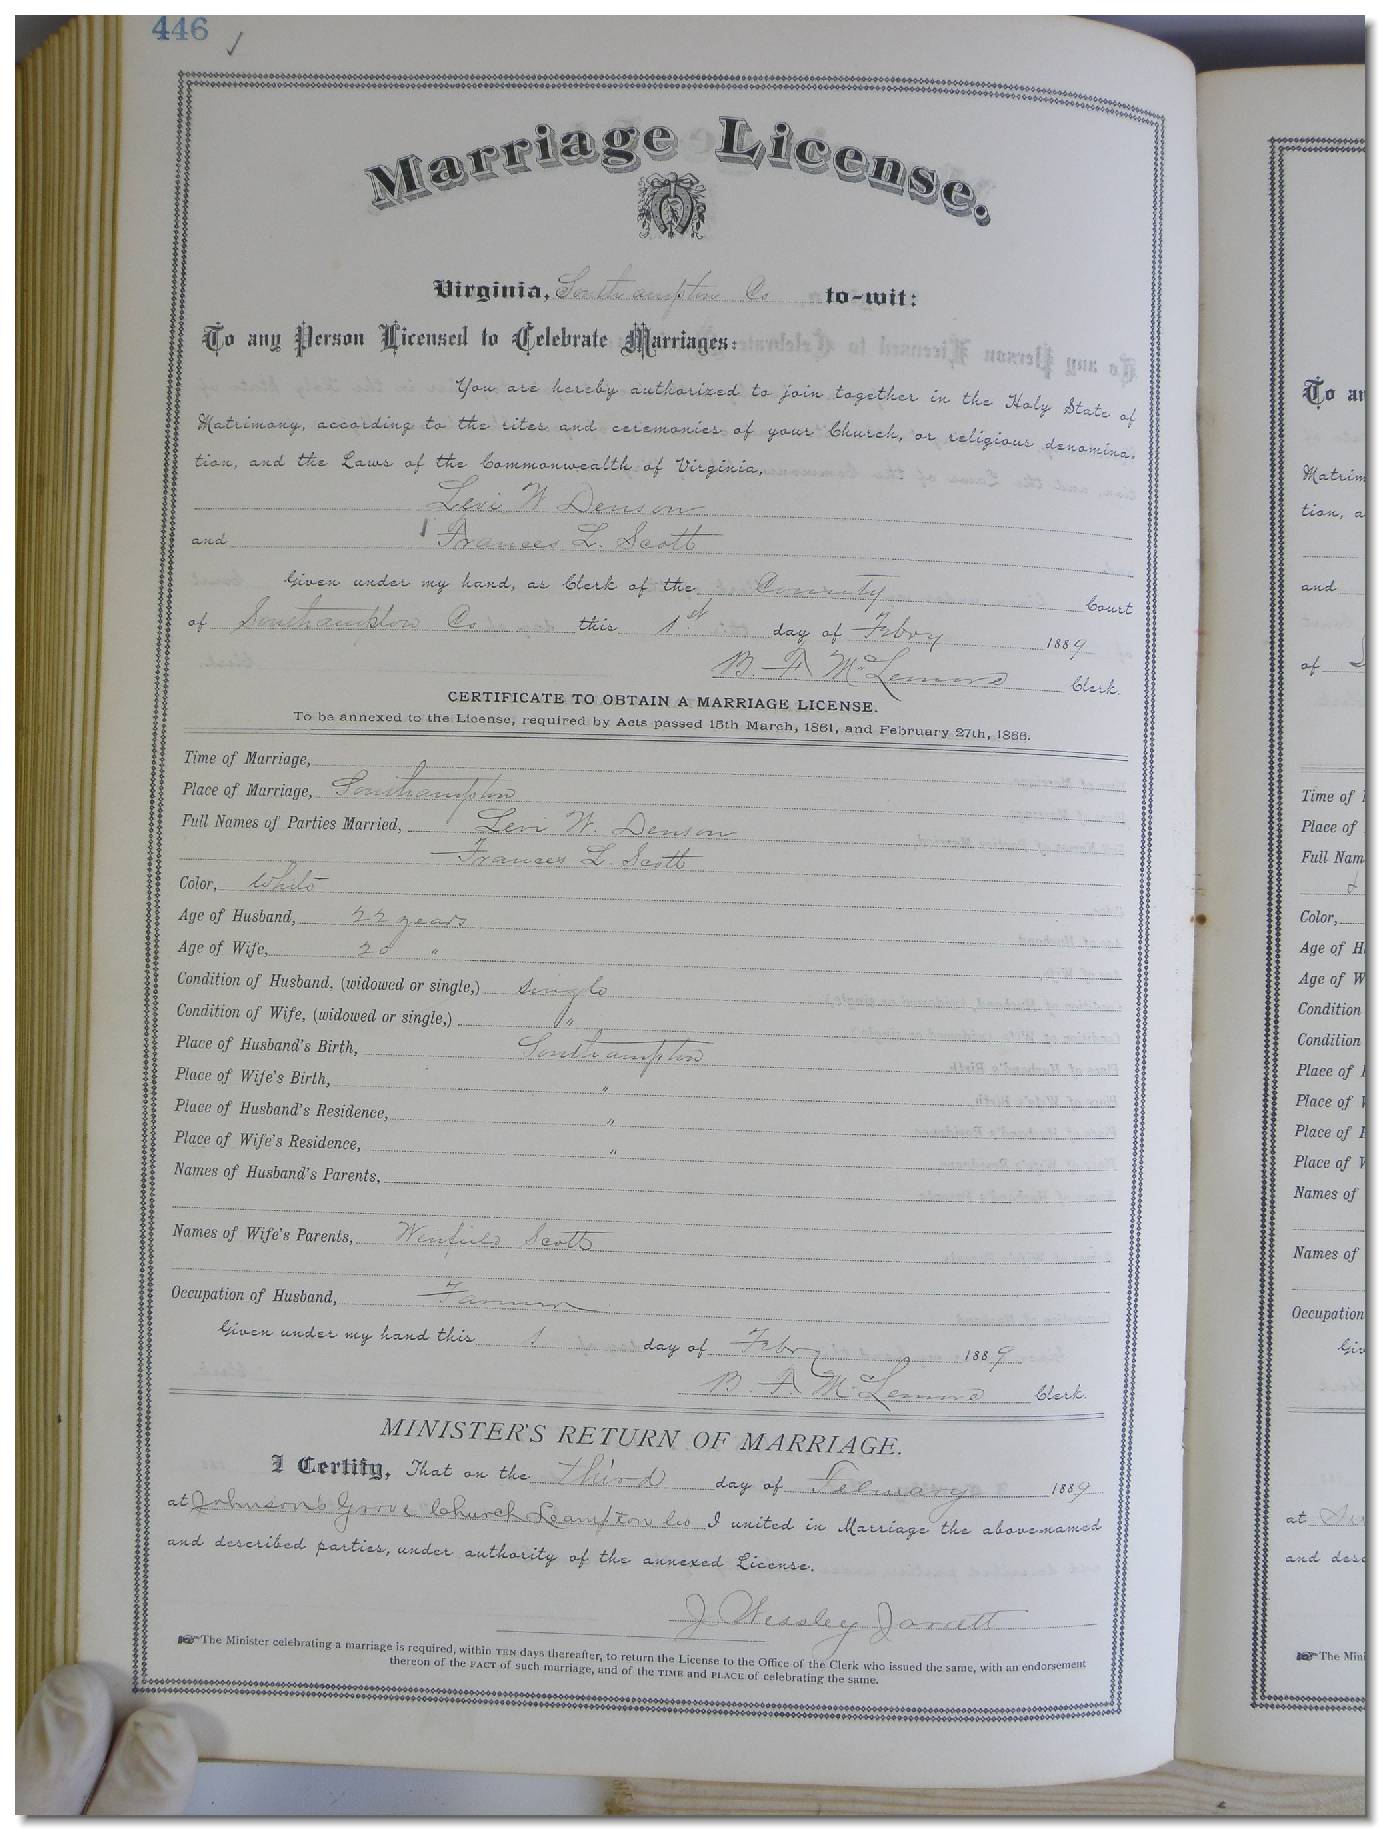 446
Marriage License.
Virginia, Southampton Co to-wit:
To any Person Licensed to Celebrate Marriages:
You are hereby authorized to join together in the Holy State of
Matrimony, according to the rites and ceremonies of your Church, or religious denomina-
tion, and the Laws of the Commonwealth of Virginia,
Levi W Denson
and Frances L. Scott
Given under my hand, as Clerk of the County Court
of Southampton Co this 1st day of Febry 1889
B. F. McLemore Clerk.
CERTIFICATE TO OBTAIN A MARRIAGE LICENSE.
To be annexed to the License, required by Acts passed 15th March, 1861, and February 27th, 1866.
Time of Marriage,
Place of Marriage, Southampton
Full Names of Parties Married, Levi W. Denson
Frances L. Scott
Color, White
Age of Husband, 22 years
Age of Wife, 20 "
Condition of Husband, (widowed or single,) single
Condition of Wife, (widowed or single,) "
Place of Husband's Birth, Southampton
Place of Wife's Birth, "
Place of Husband's Residence, "
Place of Wife's Residence, "
Names of Husband's Parents,
Names of Wife's Parents, Winfield Scott
Occupation of Husband, Farmer
Given under my hand this 1 day of Febry 1889
B. F. McLemore Clerk.
MINISTER'S RETURN OF MARRIAGE.
I Certify, That on the third day of Feburary 1889
at Johnson's Grove Church S.ampton Co I united in Marriage the above-named
and described parties, under authority of the annexed License.
J Wessley Jarrett
The Minister celebrating a marriage is required, within TEN days thereafter, to return the License to the Office of the Clerk who issued the same, with an endorsement
thereon of the FACT of such marriage, and of the TIME and PLACE of celebrating the same.
To an
Matrim
tion, a
and
of
Time of
Place of
Full Nam
Color,
Age of H
Age of W
Condition
Condition
Place of
Place of W
Place of
Place of W
Names of
Names of
Occupation
Giv
at
and desc
The Mini